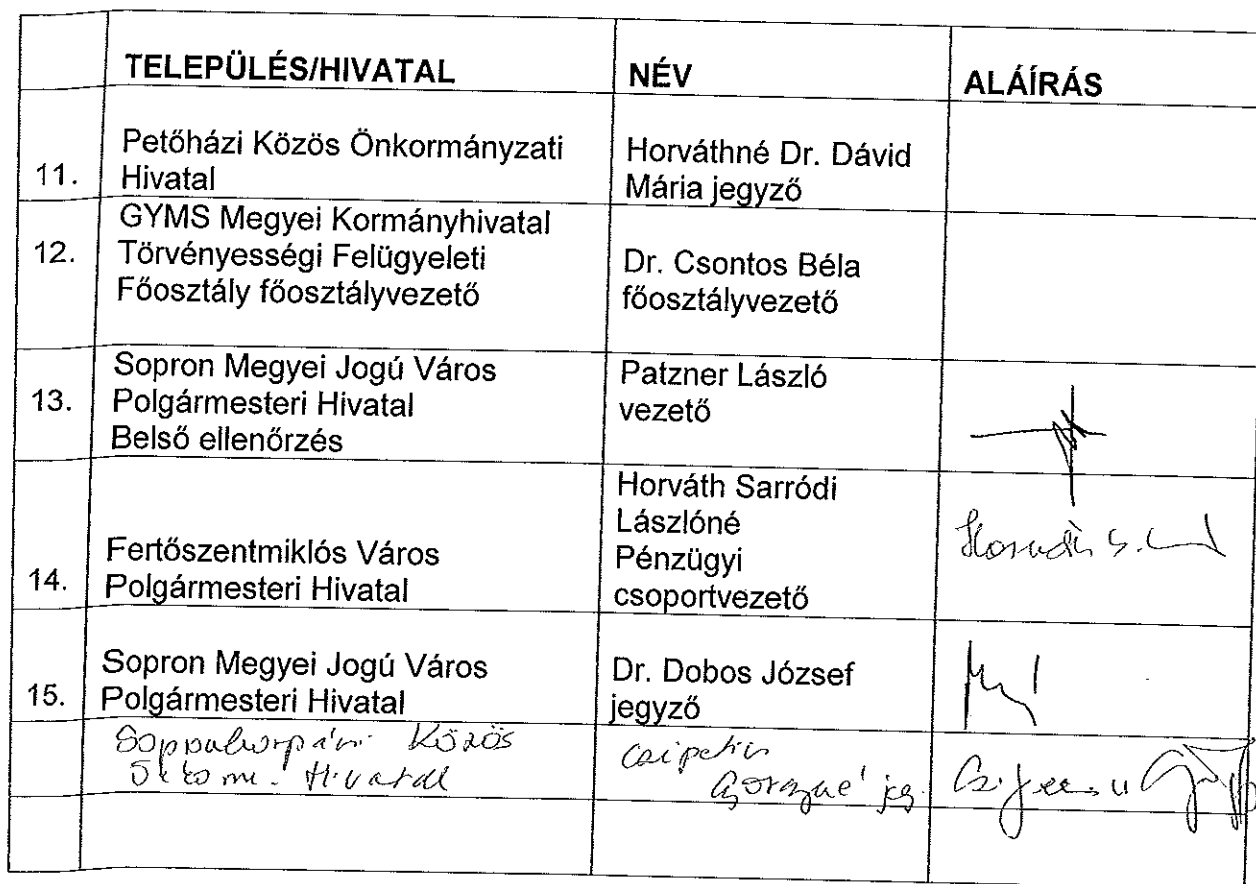 TELEPÜLÉS/HIVATAL NÉV ALÁÍRÁS
11. Petőházi Közös Önkormányzati
Hivatal
Horváthné Dr. Dávid
Mária jegyző
12. GYMS Megyei Kormányhivatal
Törvényességi Felügyeleti
Főosztály főosztályvezető
Dr. Csontos Béla
főosztályvezető
13. Sopron Megyei Jogú Város
Polgármesteri Hivatal
Belső ellenőrzés
Patzner László
vezető
14. Fertőszentmiklós Város
Polgármesteri Hivatal
Horváth Sarródi
Lászlóné
Pénzügyi
csoportvezető
Horváth S.
15. Sopron Megyei Jogú Város
Polgármesteri Hivatal
Dr. Dobos József
jegyző
Közös
Hivatal